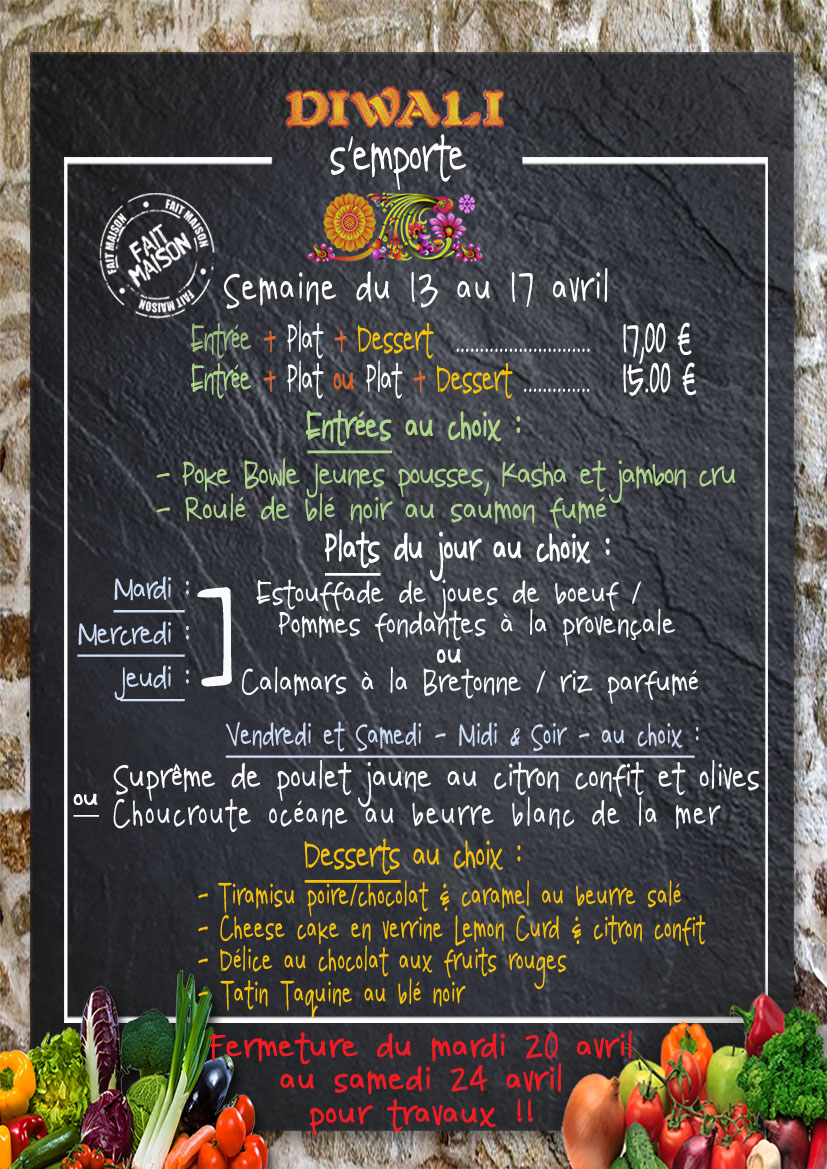 DIWALI
s'emporte
FAIT MAISON
FAIT MAISON
FAIT MAISON
FAIT MAISON
Semaine du 13 au 17 avril
Entrée + Plat + Dessert ............................ 17,00 €
Entrée + Plat ou Plat + Dessert ............. 15.00 €
Entrées au choix :
- Poke Bowle jeunes pousses, Kasha et jambon cru
- Roulé de blé noir au saumon fumé
Plats du jour au choix :
Mardi :
Mercredi :
Jeudi :
Estouffade de joues de boeuf /
Pommes fondantes à la provençale
ou
Calamars à la Bretonne / riz parfumé
Vendredi et Samedi - Midi & Soir - au choix :
Suprême de poulet jaune au citron confit et olives
ou Choucroute océane au beurre blanc de la mer
Desserts au choix :
- Tiramisu poire/chocolat & caramel au beurre salé
- Cheese cake en verrine Lemon Curd & citron confit
- Délice au chocolat aux fruits rouges
- Tatin Taquine au blé noir
Fermeture du mardi 20 avril
au samedi 24 avril
pour travaux !!